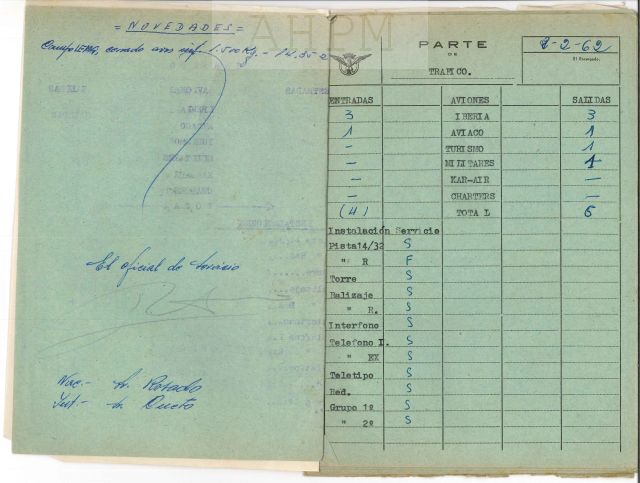 AHPM
= NOVEDADES =
Campo LEMG, cerrado avos inf. 1.500 Kg. - 14.35-2
El oficial de servicio
Nac.- Sr. Rosado
Int.- Sr. Cueto
PARTE
DE
TRAFICO.
2-2-62
El Encargado.
ENTRADAS AVIONES SALIDAS
3 IBERIA 3
1 AVIACO 1
- TURISMO 1
- MILITARES 1
- KAR-AIR -
- CHARTERS -
(4) TOTAL 6
Instalación Servicio
Pista 14/32 S
" R F
Torre S
Balizaje S
" R. S
Interfono S
Telefono I. S
" EX S
Teletipo S
Red. S
Grupo 1º S
" 2º S